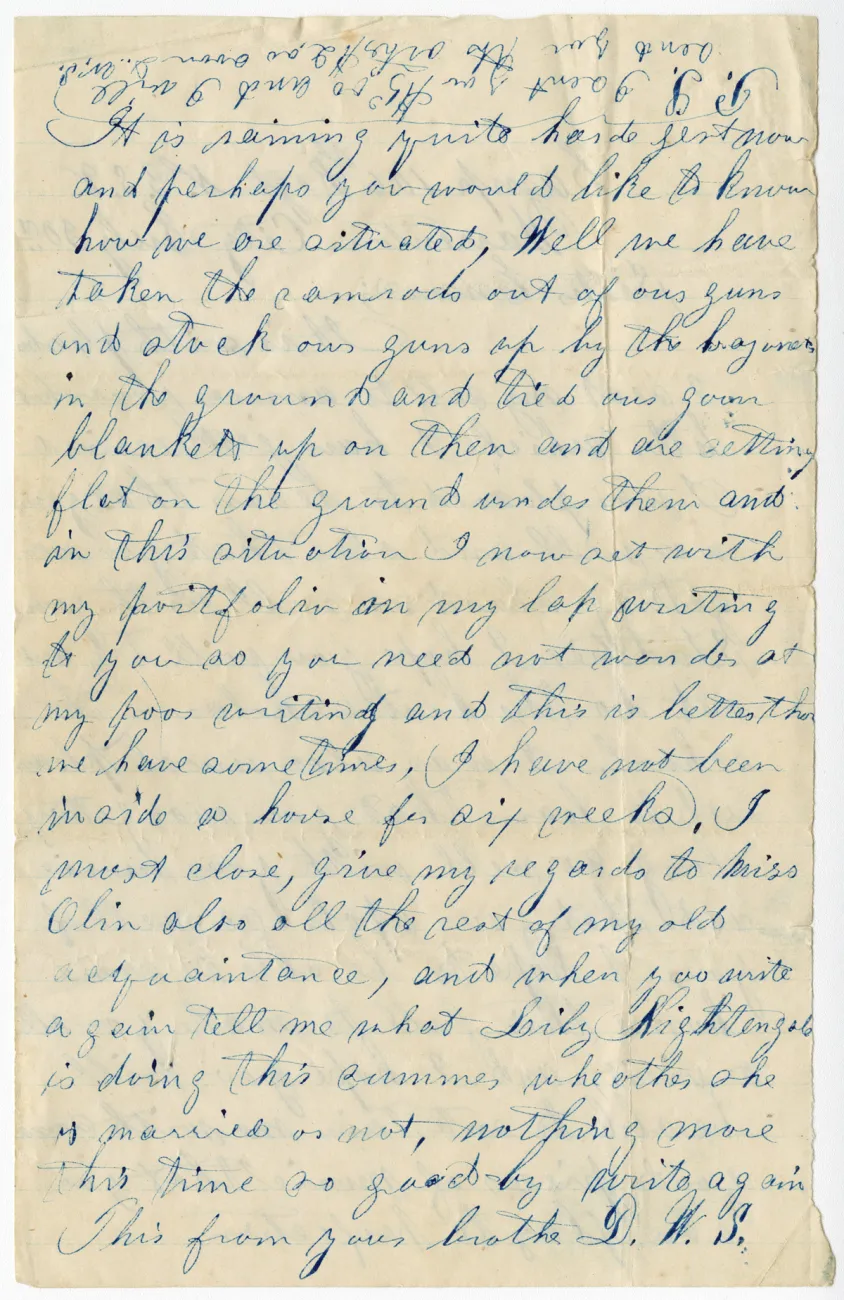 It is raining quite hard jest now
and perhaps you would like to know
how we are situated, Well we have
taken the ramrods out of our guns
and stuck our guns up by the bayonets
in the ground and tied our goom
blankets up on then and are setting
flat on the ground under them and
in this situation I now set with
my portfolio in my lap writing
to you so you need not wonder at
my poor writing and this is better than
we have sometimes, I have not been
inside a house for six weeks, I
must close, give my regards to miss
Olin also all the rest of my old
acquaintance, and when you write
again tell me what Liby Nightengale
is doing this summer wheother she
is married or not, nothing more
this time so good-by write again
This from your brothe D. W. S.
P. S. I sent you $5.00 and I will
send you the other $2.00 soon D. W. S.